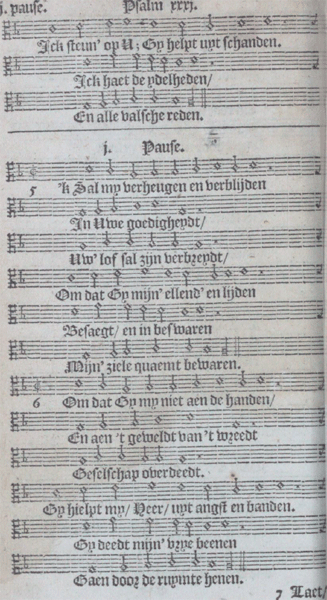 j. pause. Psalm xxxj.
Ick steun' op U; Gy helpt uyt schanden.
Ick haet de ydelheden/
En alle valsche reden.
j. Pause.
5 'k Sal my verheugen en verblijden
In Uwe goedigheydt/
Uw' lof sal zijn verbreydt/
Om dat Gy mijn' ellend' en lijden
Besaegt/ en in beswaren
Mijn' ziele quaemt bewaren.
6 Om dat Gy my niet aen de handen/
En aen 't geweldt van 't wreedt
Geselschap overdeedt.
Gy hielpt my/ Heer/ uyt angst en banden.
Gy deedt mijn' vrye beenen
Gaen door de ruymte henen.
7 Laet/